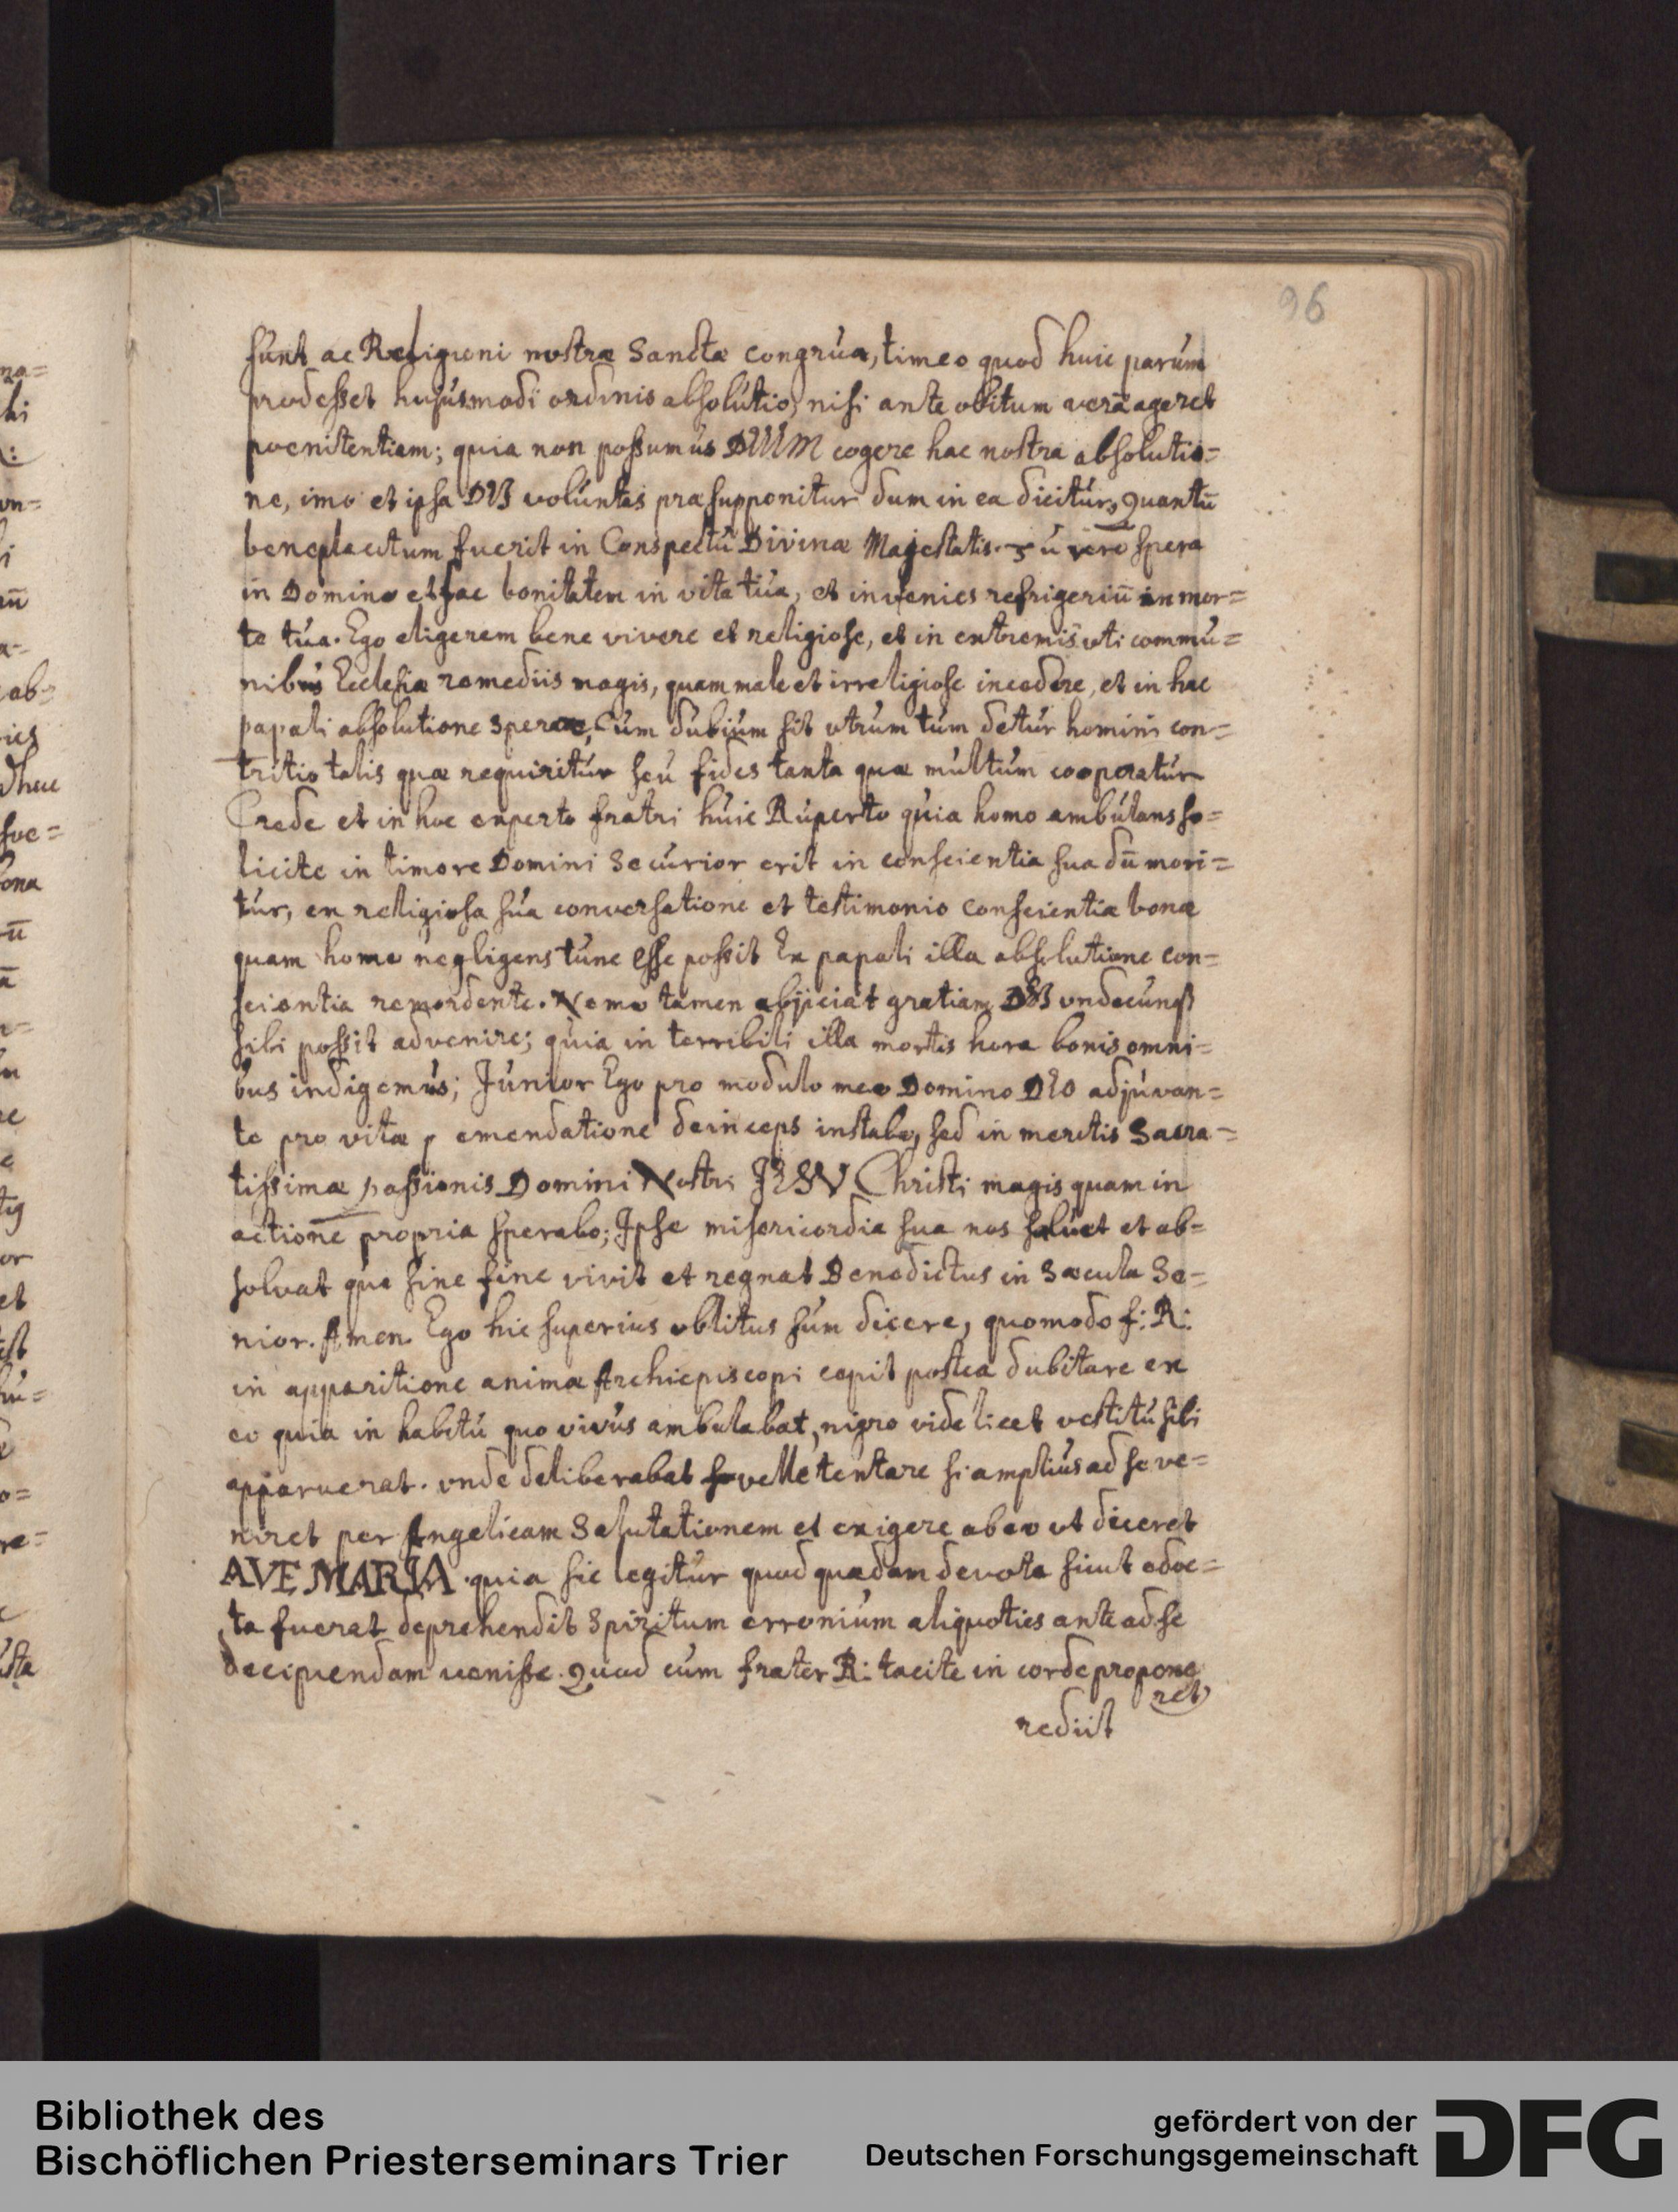 96
sunt ac Religioni nostræ Sanctæ congrua, timeo quod huic parum
prodesset hujusmodi ordinis absolutio, nisi ante obitum verā ageret
poenitentiam; quia non possumus DEUM cogere hac nostra absolutio=
ne, imo et ipsa DEI voluntas præsupponitur dum in ea dicitur, Quantū
beneplacitum fuerit in Conspectu Divinæ Majestatis. Tu vero spera
in Domino et fac bonitatem in vita tua, et invenies refrigeriū in mor=
te tua. Ego eligerem bene vivere et religiose, et in extremis uti commu=
nibus Ecclesiæ remediis magis, quam male et irreligiose incedere, et in hac
papali absolutione sperare, Cum dubium sit utrum tum detur homini con=
tritio talis quæ requiritur seu fides tanta quæ multum cooperatur
Crede et in hoc experto fratri huic Ruperto quia homo ambulans so=
licite in timore Domini Securior erit in conscientia sua dū mori=
tur, ex religiosa sua conversatione et testimonio conscientiæ bonæ
quam homo negligens tunc esse possit Ex papali illa absolutione con=
scientia remordente. Nemo tamen abjiciat gratiam DEI undecunq3
sibi possit advenire; quia in terribili illa mortis hora bonis omni=
bus indigemus; Junior Ego pro modulo meo Domino DEO adjuvan=
te pro vitæ emendatione deinceps instabo, sed in meritis Sacra=
tissimæ passionis Domini Nostri JESV Christi magis quam in
actione propria sperabo; Ipse misericordia sua nos salvet et ab=
solvat qui sine fine vivit et regnat Benedictus in Sæcula Se=
nior. Amen. Ego hic superius oblitus sum dicere, quomodo f: R:
in apparitione animæ Archiepiscopi cepit postea dubitare ex
eo quia in habitu quo vivus ambulabat, nigro videlicet vestitu sibi
apparuerat. unde deliberabat se velle tentare si amplius ad se ve=
niret per Angelicam Salutationem et exigere ab eo ut diceret
AVE MARIA. quia sic legitur quod quædam devota sicut edoc=
ta fuerat deprehendit Spiritum erronium aliquoties ante ad se
decipiendam uenisse. Quod cum frater R: tacite in corde propone
ret
rediit
na=
hi
ab=
adhuc
sve=
bona
or
et
est
re=
Bibliothek des
Bischöflichen Priesterseminars Trier
gefördert von der
Deutschen Forschungsgemeinschaft
DFG